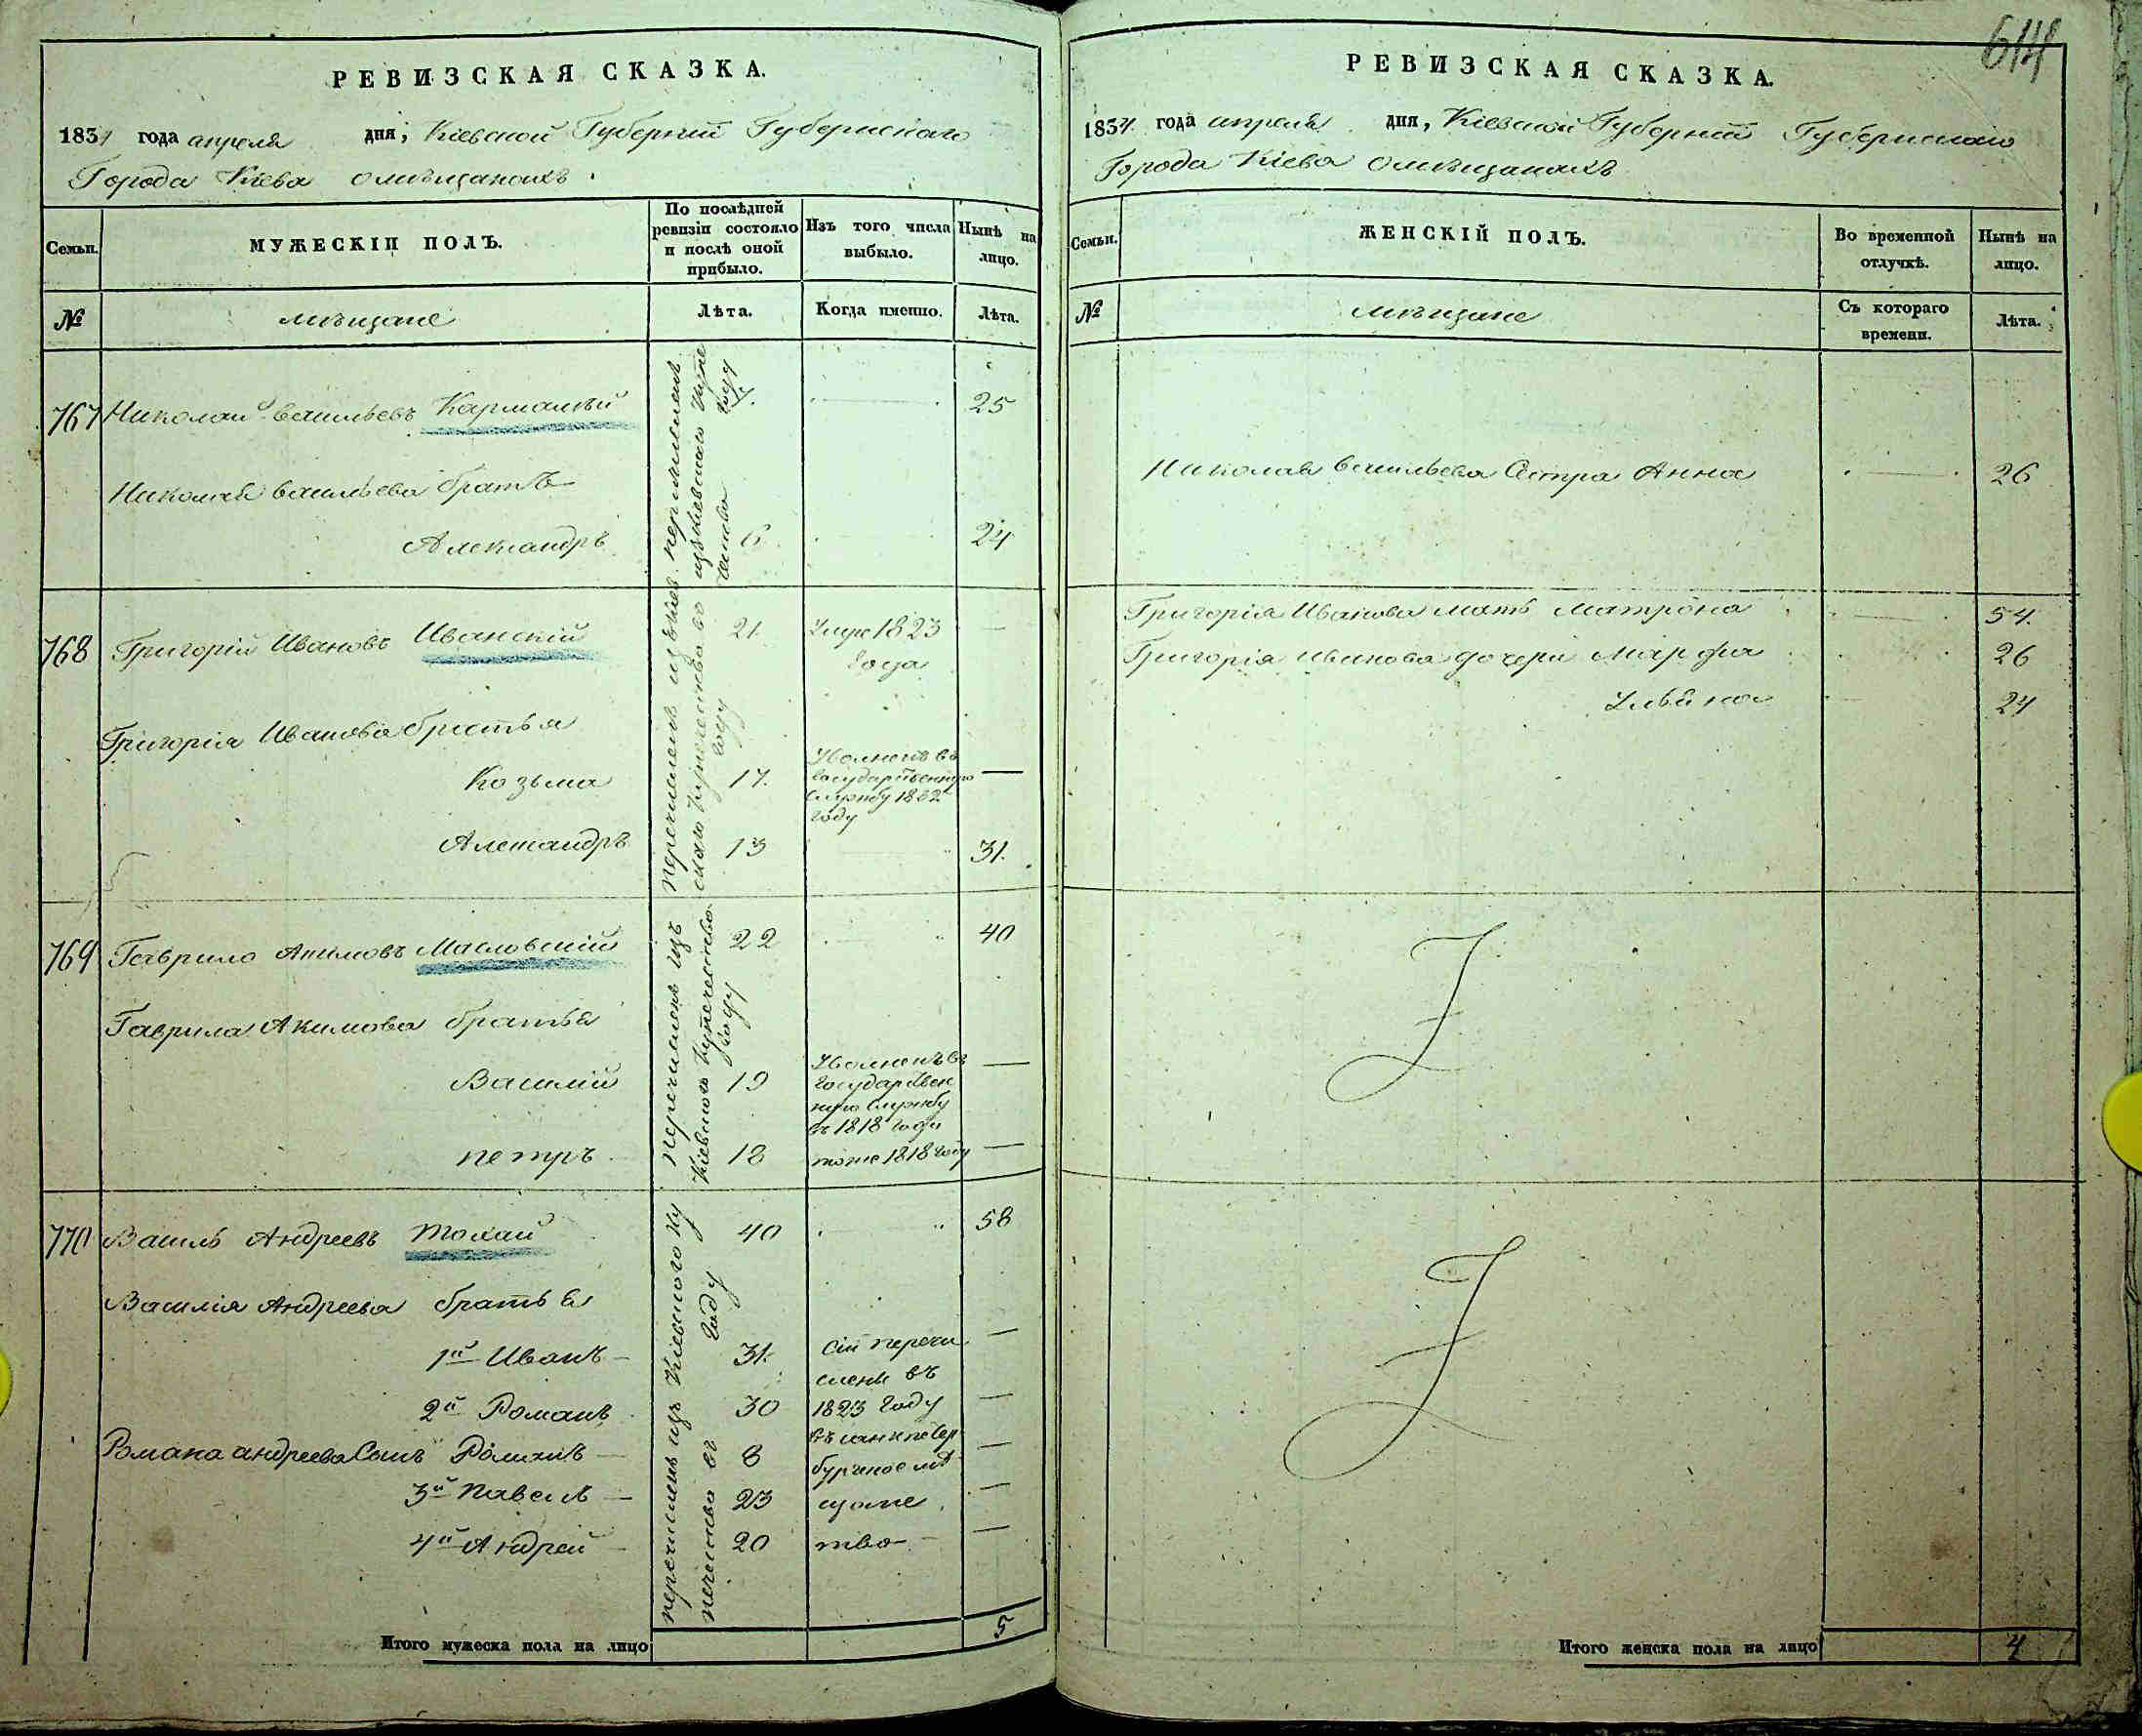 РЕВИЗСКАЯ СКАЗКА.
1834 года апреля дня, Кіевской Губерніи Губернскаго
Города Кіева о мѣщанахъ
Семьи.
МУЖЕСКІЙ ПОЛЪ.
По послѣдней ревизіи состояло и послѣ оной прибыло.
Изъ того числа выбыло.
Нынѣ на лицо.
№
мѣщане
Лѣта.
Когда именно.
Лѣта.
767 Николай Васильевъ 7. 25
Николая Васильева братъ
Александръ 6 24
768 Григорій Ивановъ Иванскій 21. Умре 1823 года —
Григорія Иванова братья
Козьма 17. Уволенъ въ государственную службу 1832 году —
Александръ 13 31.
перечисленъ изъ Кіевскаго купечества въ году
769 Гаврило Акимовъ Масловскій 22 40
Гаврила Акимова братья
Василій 19 Уволенъ въ государственную службу въ 1818 году —
Петръ 18 тоже 1818 году —
перечисленъ изъ Кіевскаго купечества году
770 Василь Андреевъ Толкай 40 58
Василія Андреева братья
1й Иванъ — 31. сіи перечи —
слены въ
2й Романъ 30 1823 году —
Романа андреева Сынъ Романъ — 8 въ санкпетер —
бургское мѣ
3й Павелъ — 23 щане —
4й Андрей — 20 тво —
перечисленъ изъ Кіевскаго купечества въ году
Итого мужеска пола на лицо 5
614
РЕВИЗСКАЯ СКАЗКА.
1834 года апреля дня, Кіевской Губерніи Губернскаго
Города Кіева о мѣщанахъ
Семьи.
ЖЕНСКІЙ ПОЛЪ.
Во временной отлучкѣ.
Нынѣ на лицо.
№
мѣщане
Съ котораго времени.
Лѣта.
Николая Васильева Сестра Анна 26
Григорія Иванова мать Матрона 54.
Григорія Иванова дочери Марфа 26
Ульяна 24
Итого женска пола на лицо 4